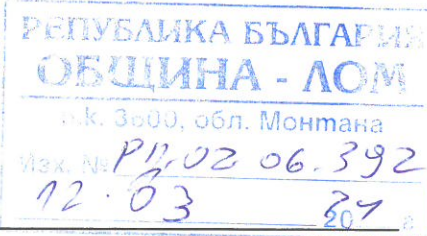 РЕПУБЛИКА БЪЛГАРИЯ
ОБЩИНА - ЛОМ
п.к. 3600, обл. Монтана
Изх. № РД.02 06.392
12.03 2021 г